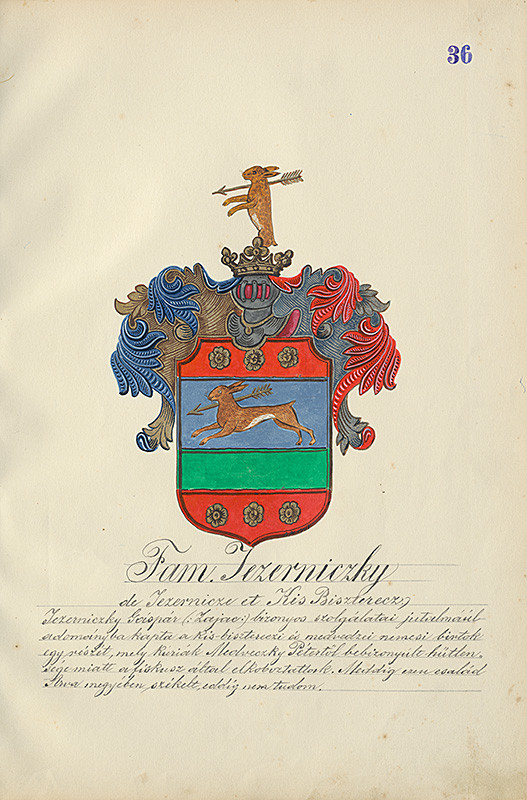 36
Fam. Jezerniczky
de Jezernicze et Kis Biszterecz
Jezerniczky Gáspár (: Zajacz :) bizonyos szolgálatai jutalmáúl
adományba kapta a kis-biszterczi és medvedzei nemesi birtok
egy részét, mely Medveczky Pétertől bebizonyult hűtlen-
sége miatt a fiskusz által elkoboztatott. Meddig ezen család
Árva megyében székelt, eddig nem tudom.